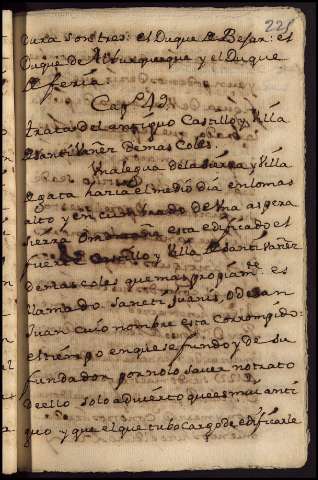 221
tura son tres: el Duque de Besar: el
Duque de Alburquerque y el Duque
de feria:
Capº. 42.
trata del antiguo Castillo y Villa
de Santi Vañez de mas coles.
Una legua de la sierra, y Villa
de gata, haria el medio dia en lo mas
alto y en cumbrado de una aspera
sierra o montaña esta edificado el
fuerte Castillo y Villa de Santi Vañez
de mas coles que mas propiamte. es
llamado Sancti Juanis, o de San
Juan cuio nombre esta corrompido:
el tiempo en que se fundo y de su
fundador por no lo saver no trato
de ello solo advierto que es mui anti
guo y que el que tubo cargo de edificarle